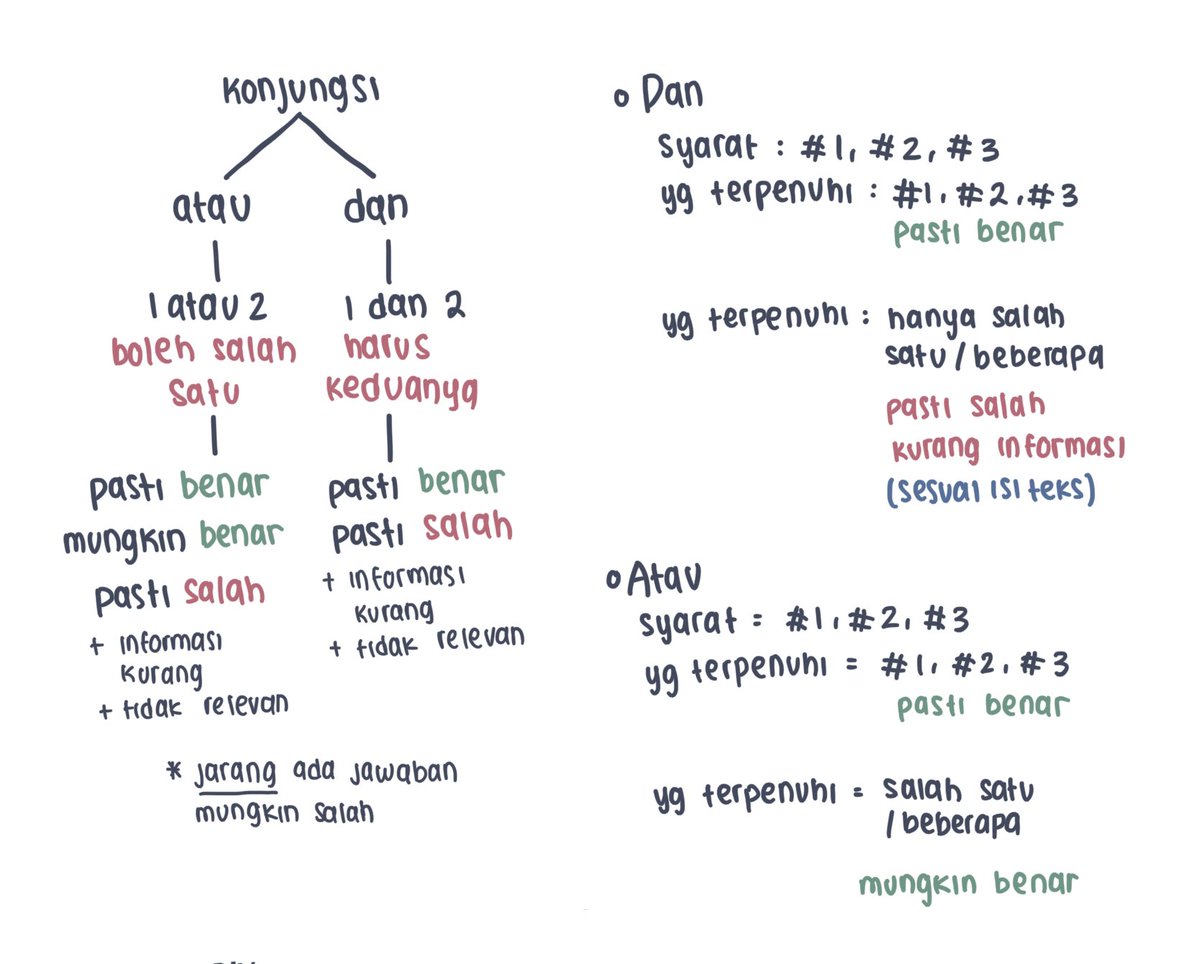 Konjungsi
atau
dan
1 atau 2
boleh salah
satu
1 dan 2
harus
keduanya
pasti benar
mungkin benar
pasti salah
+ informasi
kurang
+ tidak relevan
pasti benar
pasti salah
+ informasi
kurang
+ tidak relevan
* jarang ada jawaban
mungkin salah
o Dan
syarat : #1, #2, #3
yg terpenuhi : #1, #2, #3
pasti benar
yg terpenuhi : hanya salah
satu / beberapa
pasti salah
kurang informasi
(sesuai isi teks)
o Atau
syarat = #1, #2, #3
yg terpenuhi = #1, #2, #3
pasti benar
yg terpenuhi = salah satu
/ beberapa
mungkin benar